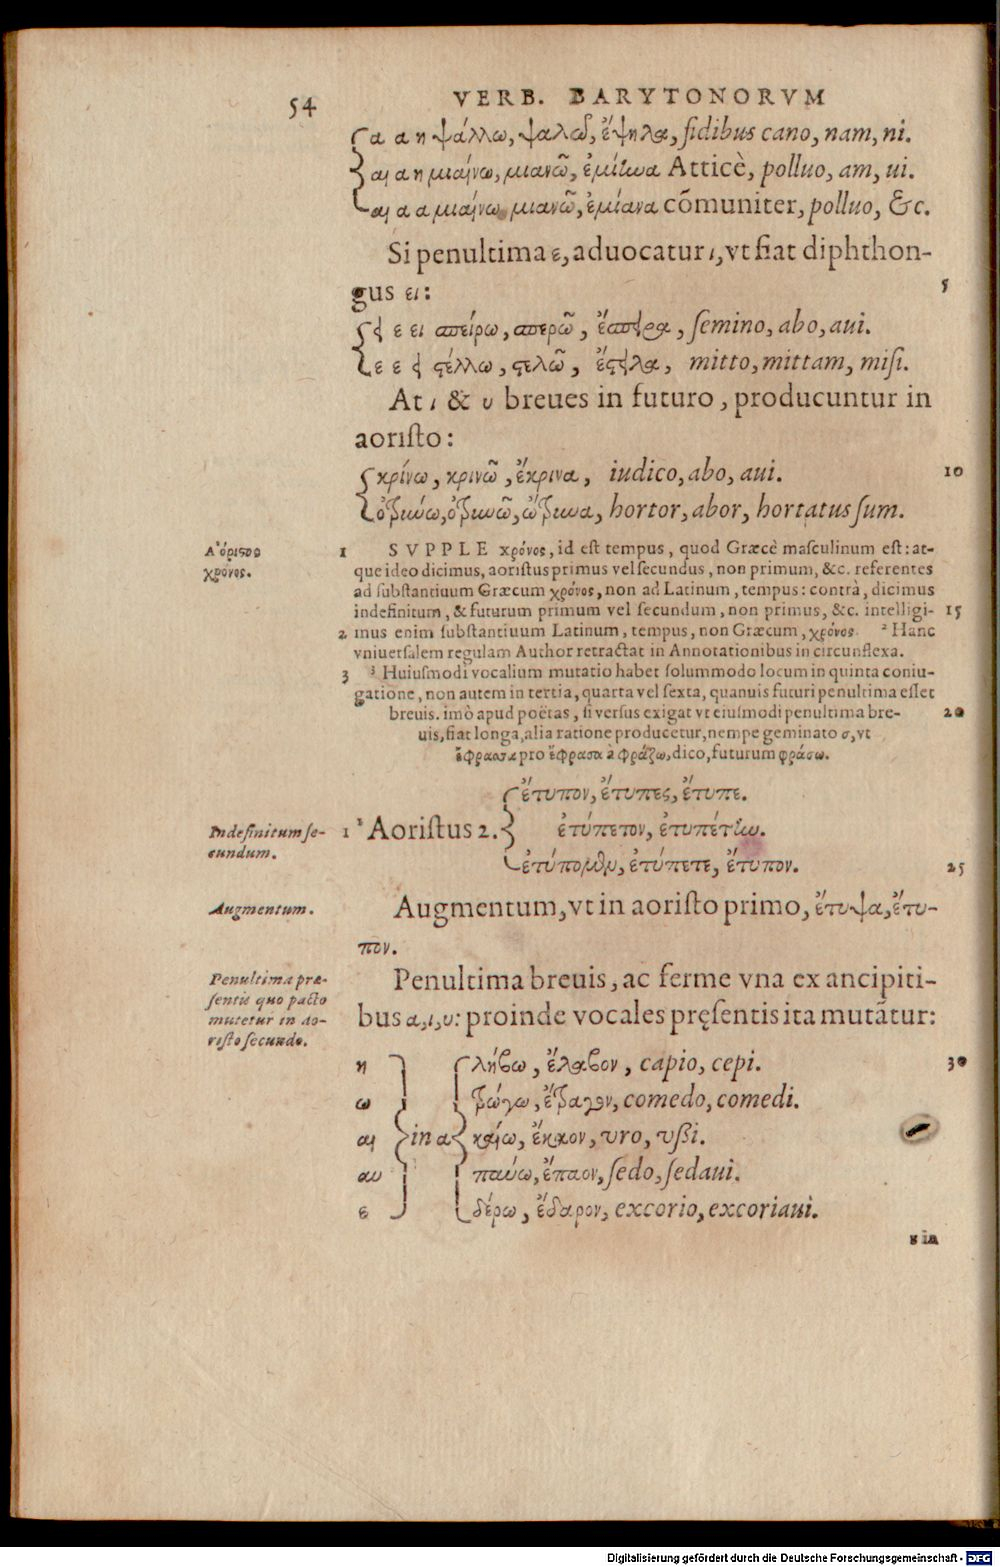 54 VERB. BARYTONORVM
α α η ψάλλω, ψαλῶ, ἔψηλα, fidibus cano, nam, ni.
αι α η μιαίνω, μιανῶ, ἐμίηνα Atticè, polluo, am, ui.
αι α α μιαίνω, μιανῶ, ἐμίανα cõmuniter, polluo, &c.
Si penultima ε, aduocatur ι, vt fiat diphthon-
gus ει: 5
ει ε ει σπείρω, σπερῶ, ἔσπειρα, semino, abo, aui.
ε ε ει στέλλω, στελῶ, ἔστειλα, mitto, mittam, misi.
At ι & υ breues in futuro, producuntur in
aoristo:
κρίνω, κρινῶ, ἔκρινα, iudico, abo, aui. 10
ὀτρύνω, ὀτρυνῶ, ὤτρυνα, hortor, abor, hortatus sum.
Ἀόριστος
χρόνος.
1 SVPPLE χρόνος, id est tempus, quod Græcè masculinum est: at-
que ideo dicimus, aoristus primus vel secundus, non primum, &c. referentes
ad substantiuum Græcum χρόνος, non ad Latinum, tempus: contrà, dicimus
indefinitum, & futurum primum vel secundum, non primus, &c. intelligi- 15
2 mus enim substantiuum Latinum, tempus, non Græcum, χρόνος. 2 Hanc
vniuersalem regulam Author retractat in Annotationibus in circunflexa.
3 3 Huiusmodi vocalium mutatio habet solummodo locum in quinta coniu-
gatione, non autem in tertia, quarta vel sexta, quanuis futuri penultima esset
breuis. imò apud poëtas, si versus exigat vt eiusmodi penultima bre- 20
uis, fiat longa, alia ratione producetur, nempe geminato σ, vt
ἔφρασσα pro ἔφρασα à φράζω, dico, futurum φράσω.
ἔτυπον, ἔτυπες, ἔτυπε.
Indefinitum se-
cundum.
1 1 Aoristus 2. ἐτύπετον, ἐτυπέτην.
ἐτύπομεν, ἐτύπετε, ἔτυπον. 25
Augmentum.
Augmentum, vt in aoristo primo, ἔτυψα, ἔτυ-
πον.
Penultima præ-
sentis quo pacto
mutetur in ao-
risto secundo.
Penultima breuis, ac ferme vna ex ancipiti-
bus α, ι, υ: proinde vocales pręsentis ita mutãtur:
η λήβω, ἔλαβον, capio, cepi. 30
ω τρώγω, ἔτραγον, comedo, comedi.
αι in α καίω, ἔκαον, vro, vssi.
αυ παύω, ἔπαον, sedo, sedaui.
ε δέρω, ἔδαρον, excorio, excoriaui.
ε in
Digitalisierung gefördert durch die Deutsche Forschungsgemeinschaft - DFG